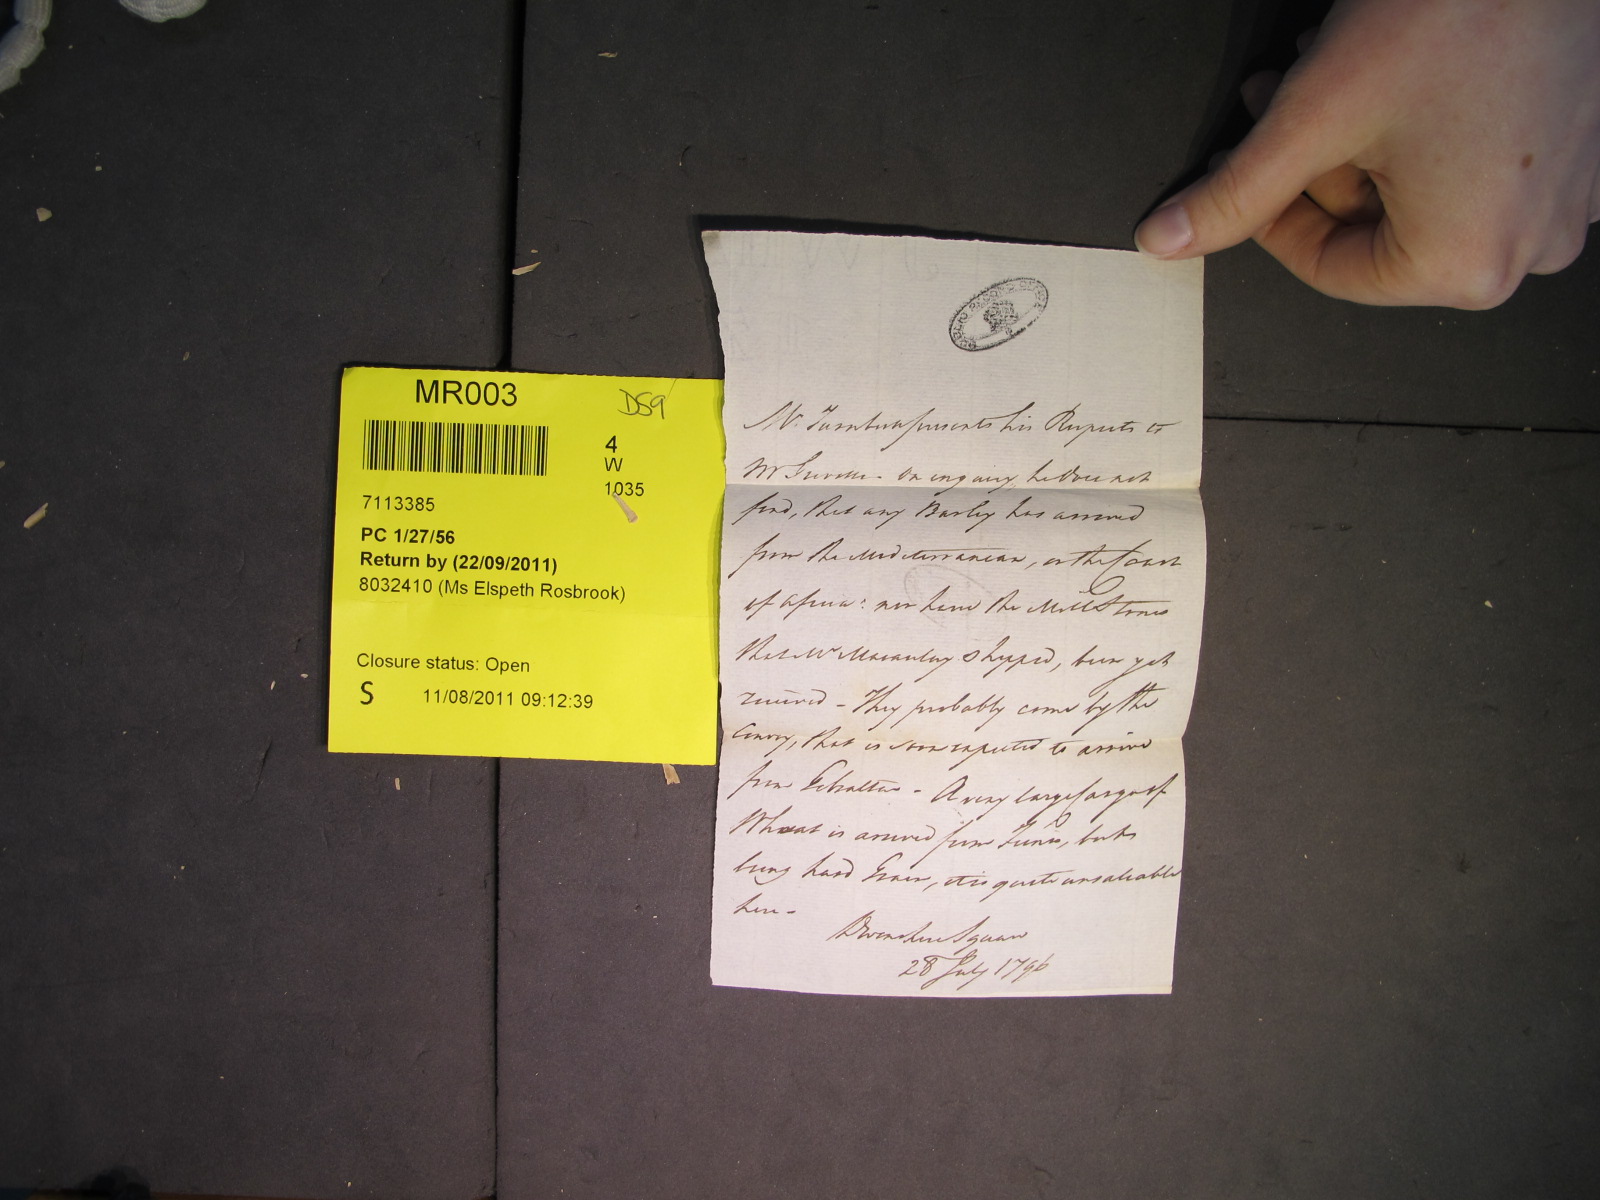 MR003
DS9
4
W
1035
7113385
PC 1/27/56
Return by (22/09/2011)
8032410 (Ms Elspeth Rosbrook)
Closure status: Open
S 11/08/2011 09:12:39
PUBLIC RECORD OFFICE
Mr. Turnbull presents his Respects to
Mr - On enquiry, he does not
find, that any Barley has arrived
from the Mediterranean, or the Coast
of Africa: nor have the Mill Stones
that Mr Macaulay Shipped, been yet
received - They probably come by the
Convoy, that is soon expected to arrive
from Gibraltar - A very large Cargo of
Wheat is arrived from Tunis, but
being hard Grain, it is quite unsaleable
here -
Devonshire Square
28 July 1796